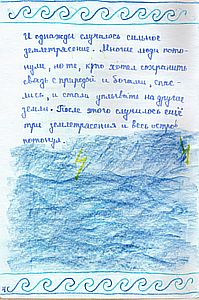 И однажды случалось сильное
землетрясение. Многие люди пото-
нули, но те, кто хотел сохранить
связь с природой и богами, спас-
лись, и стали уплывать на другие
земли. После этого случилось ещё
три землетрясения и весь остров
потонул.